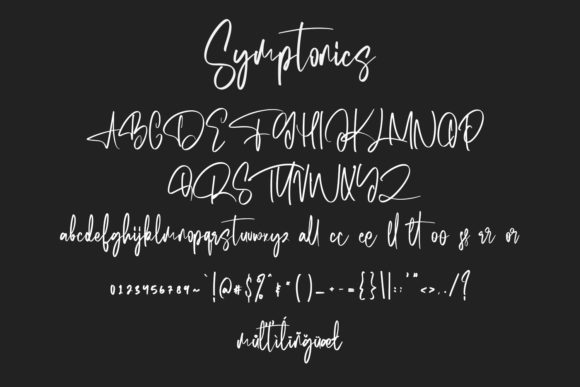 Symptonics
ABCDEFGHIJKLMNOP
QRSTUVWXYZ
abcdefghijklmnopqrstuvwxyz all cc ee ll tt oo ss rr or
0123456789~`!@#$%^&*()_+-={}\||::'"<>,./?
mültìlíñğüæł